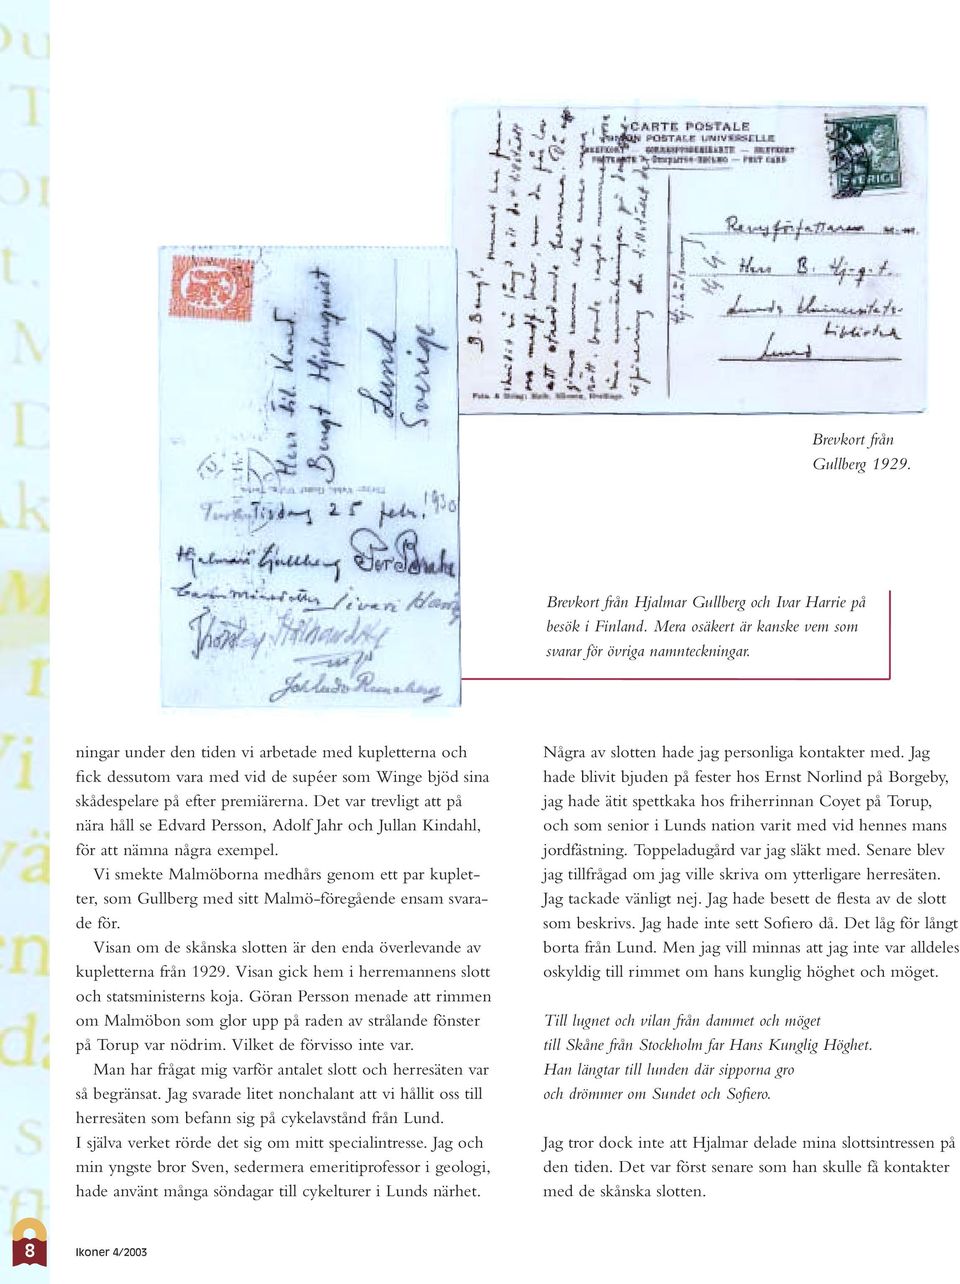 CARTE POSTALE
UNION POSTALE UNIVERSELLE
SVERIGE
Revyförfattaren m.m.
Herr B. Hj-g-t.
Lunds Universitets-
bibliotek
Lund
B. Bengt.
Herr fil. kand.
Bengt Hjelmqvist
Lund
Sverige
Tisdag 25 febr. 1930
Hjalmar Gullberg
Per Brahe
Ivar Harrie
Brevkort från
Gullberg 1929.
Brevkort från Hjalmar Gullberg och Ivar Harrie på
besök i Finland. Mera osäkert är kanske vem som
svarar för övriga namnteckningar.
ningar under den tiden vi arbetade med kupletterna och
fick dessutom vara med vid de supéer som Winge bjöd sina
skådespelare på efter premiärerna. Det var trevligt att på
nära håll se Edvard Persson, Adolf Jahr och Jullan Kindahl,
för att nämna några exempel.
Vi smekte Malmöborna medhårs genom ett par kuplet-
ter, som Gullberg med sitt Malmö-föregående ensam svara-
de för.
Visan om de skånska slotten är den enda överlevande av
kupletterna från 1929. Visan gick hem i herremannens slott
och statsministerns koja. Göran Persson menade att rimmen
om Malmöbon som glor upp på raden av strålande fönster
på Torup var nödrim. Vilket de förvisso inte var.
Man har frågat mig varför antalet slott och herresäten var
så begränsat. Jag svarade litet nonchalant att vi hållit oss till
herresäten som befann sig på cykelavstånd från Lund.
I själva verket rörde det sig om mitt specialintresse. Jag och
min yngste bror Sven, sedermera emeritiprofessor i geologi,
hade använt många söndagar till cykelturer i Lunds närhet.
Några av slotten hade jag personliga kontakter med. Jag
hade blivit bjuden på fester hos Ernst Norlind på Borgeby,
jag hade ätit spettkaka hos friherrinnan Coyet på Torup,
och som senior i Lunds nation varit med vid hennes mans
jordfästning. Toppeladugård var jag släkt med. Senare blev
jag tillfrågad om jag ville skriva om ytterligare herresäten.
Jag tackade vänligt nej. Jag hade besett de flesta av de slott
som beskrivs. Jag hade inte sett Sofiero då. Det låg för långt
borta från Lund. Men jag vill minnas att jag inte var alldeles
oskyldig till rimmet om hans kunglig höghet och möget.
Till lugnet och vilan från dammet och möget
till Skåne från Stockholm far Hans Kunglig Höghet.
Han längtar till lunden där sipporna gro
och drömmer om Sundet och Sofiero.
Jag tror dock inte att Hjalmar delade mina slottsintressen på
den tiden. Det var först senare som han skulle få kontakter
med de skånska slotten.
8
Ikoner 4/2003